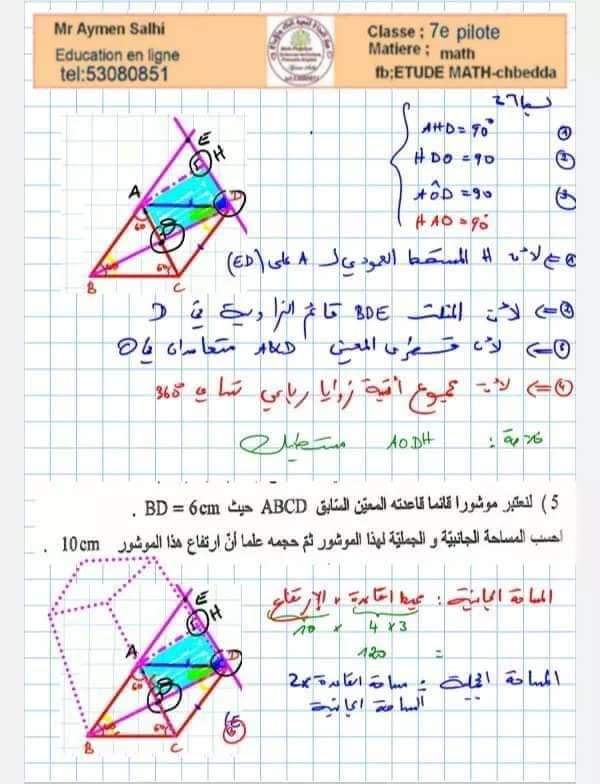 Mr Aymen Salhi
Education en ligne
tel:53080851
Classe ; 7e pilote
Matiere ; math
fb;ETUDE MATH-chbedda
AHD = 90°
①
HDO = 90
②
AÔD = 90
③
HAO = 90°
E
H
A
D
B
C
60
60
① <= لأن H المسقط العمودي لـ A على (ED)
② <= لأن المثلث BDE قائم الزاوية في D
③ <= لأن قطري المعين ABCD متعامدان في O
④ <= لأن مجموع أقيسة زوايا رباعي تساوي 360°
خلاصة : AODH مستطيل
5) لنعتبر موشورا قائما قاعدته المعيّن السّابق ABCD حيث BD = 6cm .
احسب المساحة الجانبيّة و الجمليّة لهذا الموشور ثمّ حجمه علما أنّ ارتفاع هذا الموشور 10cm .
المساحة الجانبية : محيط القاعدة x الإرتفاع
10 x 4 x 3
= 120
المساحة الجملية : مساحة القاعدة x2
المساحة الجانبية
E
H
A
D
B
C
60
60